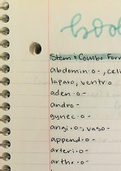 body
Stem + Combo For
abdomin·o-, celi
lapar·o, ventr·o
aden·o-
andr·o-
gynec·o-
angi·o-, vas·o-
append·o-
arteri·o-
arthr·o-